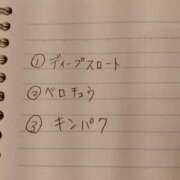 ① ディープスロート
② ベロチュウ
③ キンパク